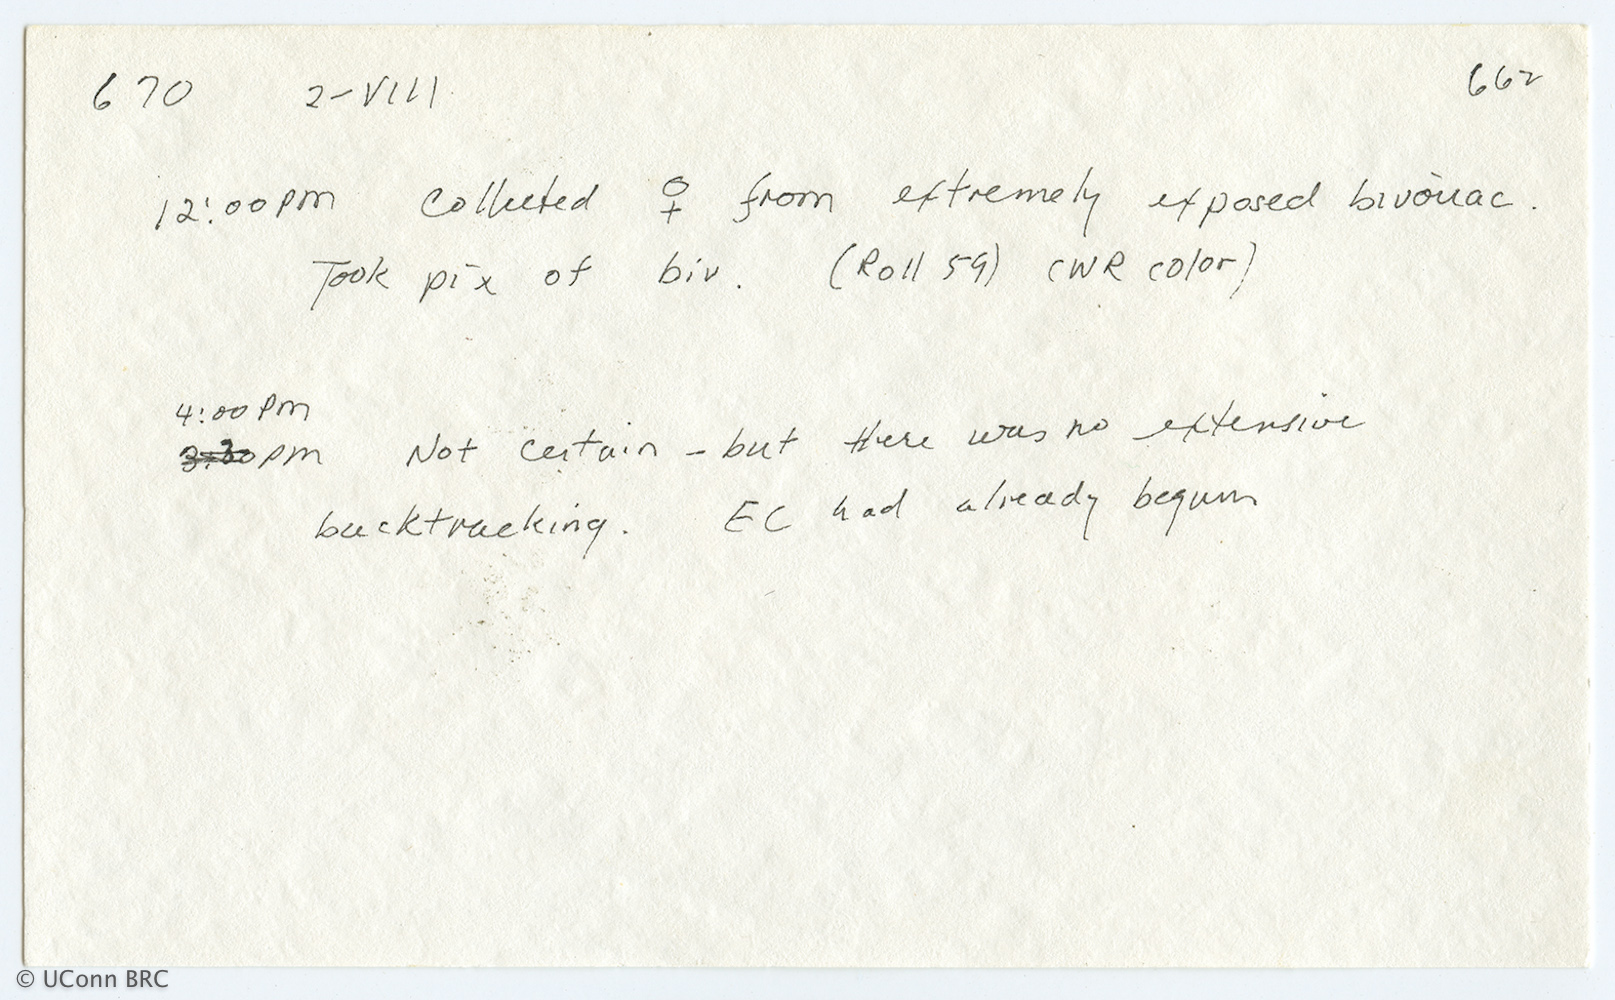 670 2-VIII 662
12:00pm Collected ♀ from extremely exposed bivouac.
Took pix of biv. (Roll 59) CWR color)
4:00 Pm
3:30pm Not certain - but there was no extensive
backtracking. EC had already begun
© UConn BRC